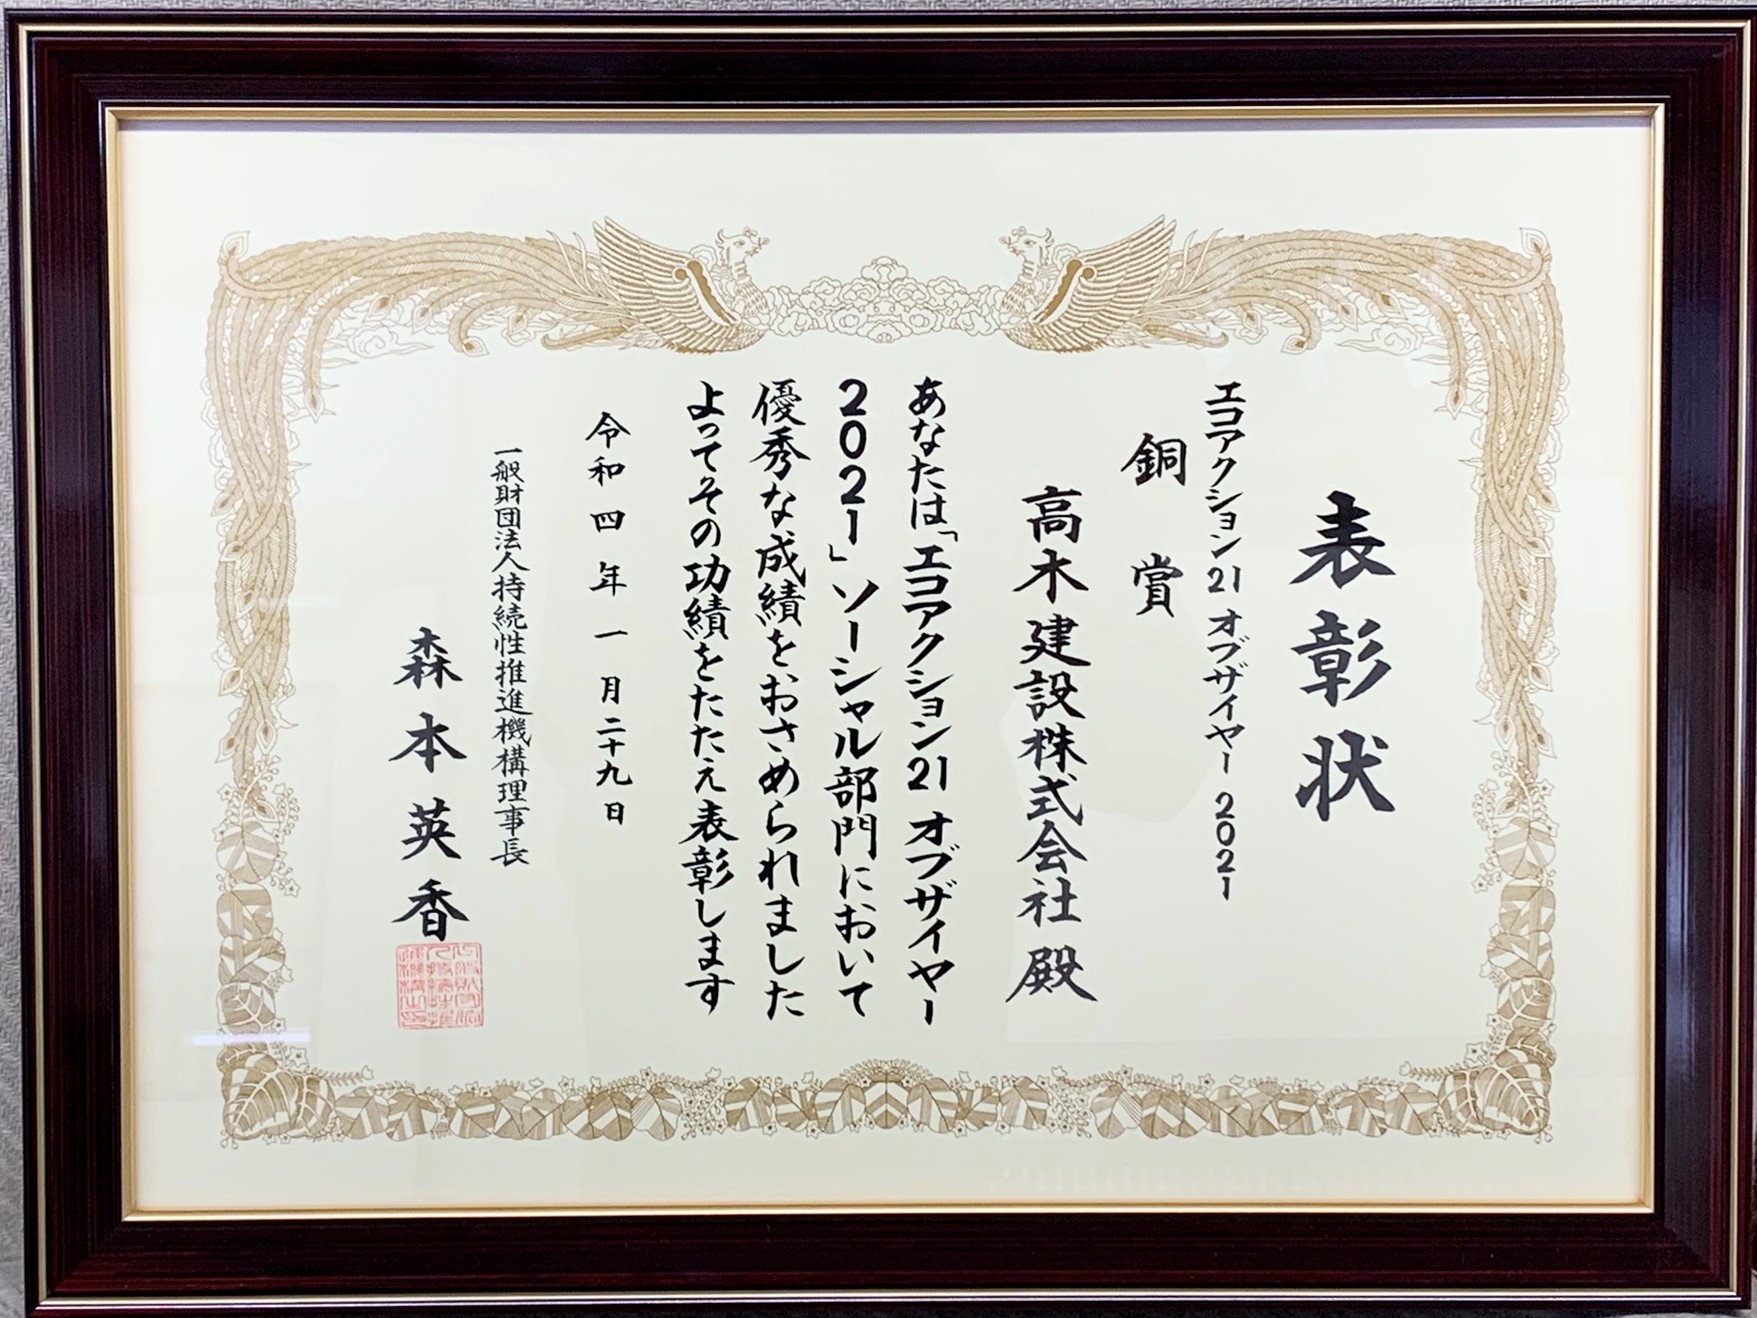 表彰状
エコアクション21 オブザイヤー 2021
銅賞
高木建設株式会社 殿
あなたは「エコアクション21 オブザイヤー
2021」ソーシャル部門において
優秀な成績をおさめられました
よってその功績をたたえ表彰します
令和四年一月二十九日
一般財団法人持続性推進機構理事長
森本英香